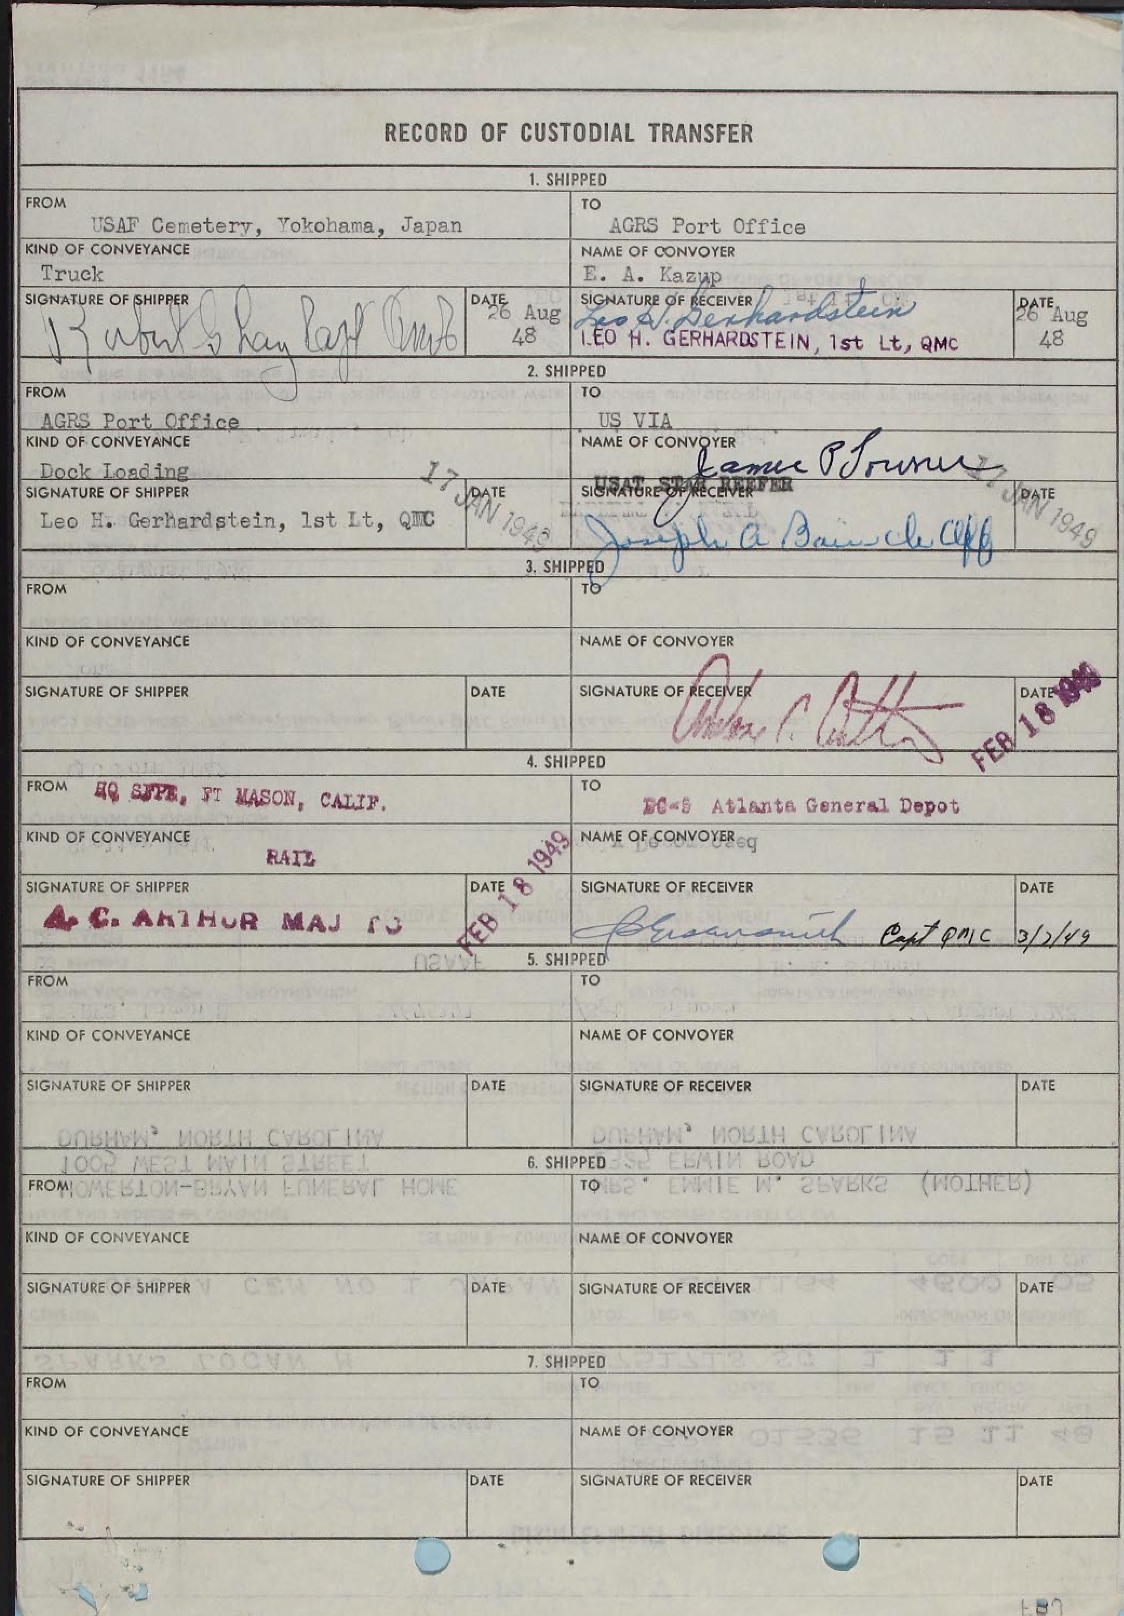 RECORD OF CUSTODIAL TRANSFER
1. SHIPPED
FROM
USAF Cemetery, Yokohama, Japan
TO
AGRS Port Office
KIND OF CONVEYANCE
Truck
NAME OF CONVOYER
E. A. Kazup
SIGNATURE OF SHIPPER
DATE
26 Aug
48
SIGNATURE OF RECEIVER
Leo H. Gerhardstein
LEO H. GERHARDSTEIN, 1st Lt, QMC
DATE
26 Aug
48
2. SHIPPED
FROM
AGRS Port Office
TO
US VIA
KIND OF CONVEYANCE
Dock Loading
NAME OF CONVOYER
James P
USAT STAR REEFER
SIGNATURE OF SHIPPER
Leo H. Gerhardstein, 1st Lt, QMC
DATE
17 JAN 1949
SIGNATURE OF RECEIVER
Joseph A
DATE
17 JAN 1949
3. SHIPPED
FROM
TO
KIND OF CONVEYANCE
NAME OF CONVOYER
SIGNATURE OF SHIPPER
DATE
SIGNATURE OF RECEIVER
DATE
FEB 18 1949
4. SHIPPED
FROM
HQ SFPE, FT MASON, CALIF.
TO
Atlanta General Depot
KIND OF CONVEYANCE
RAIL
NAME OF CONVOYER
SIGNATURE OF SHIPPER
A. C. ARTHUR MAJ
DATE
FEB 18 1949
SIGNATURE OF RECEIVER
Capt QMC
DATE
3/2/49
5. SHIPPED
FROM
TO
KIND OF CONVEYANCE
NAME OF CONVOYER
SIGNATURE OF SHIPPER
DATE
SIGNATURE OF RECEIVER
DATE
6. SHIPPED
FROM
TO
KIND OF CONVEYANCE
NAME OF CONVOYER
SIGNATURE OF SHIPPER
DATE
SIGNATURE OF RECEIVER
DATE
7. SHIPPED
FROM
TO
KIND OF CONVEYANCE
NAME OF CONVOYER
SIGNATURE OF SHIPPER
DATE
SIGNATURE OF RECEIVER
DATE